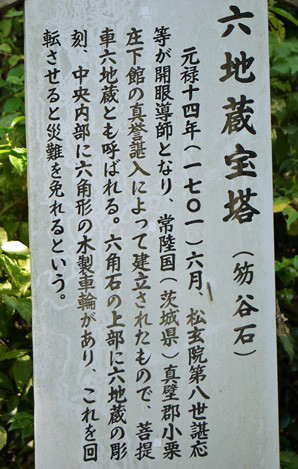 六地蔵宝塔（笏谷石）
元禄十四年（一七〇一）六月、松玄院第八世諶忘
等が開眼導師となり、常陸国（茨城県）真壁郡小栗
庄下館の真誉諶入によって建立されたもので、菩提
車六地蔵とも呼ばれる。六角石の上部に六地蔵の彫
刻、中央内部に六角形の木製車輪があり、これを回
転させると災難を免れるという。